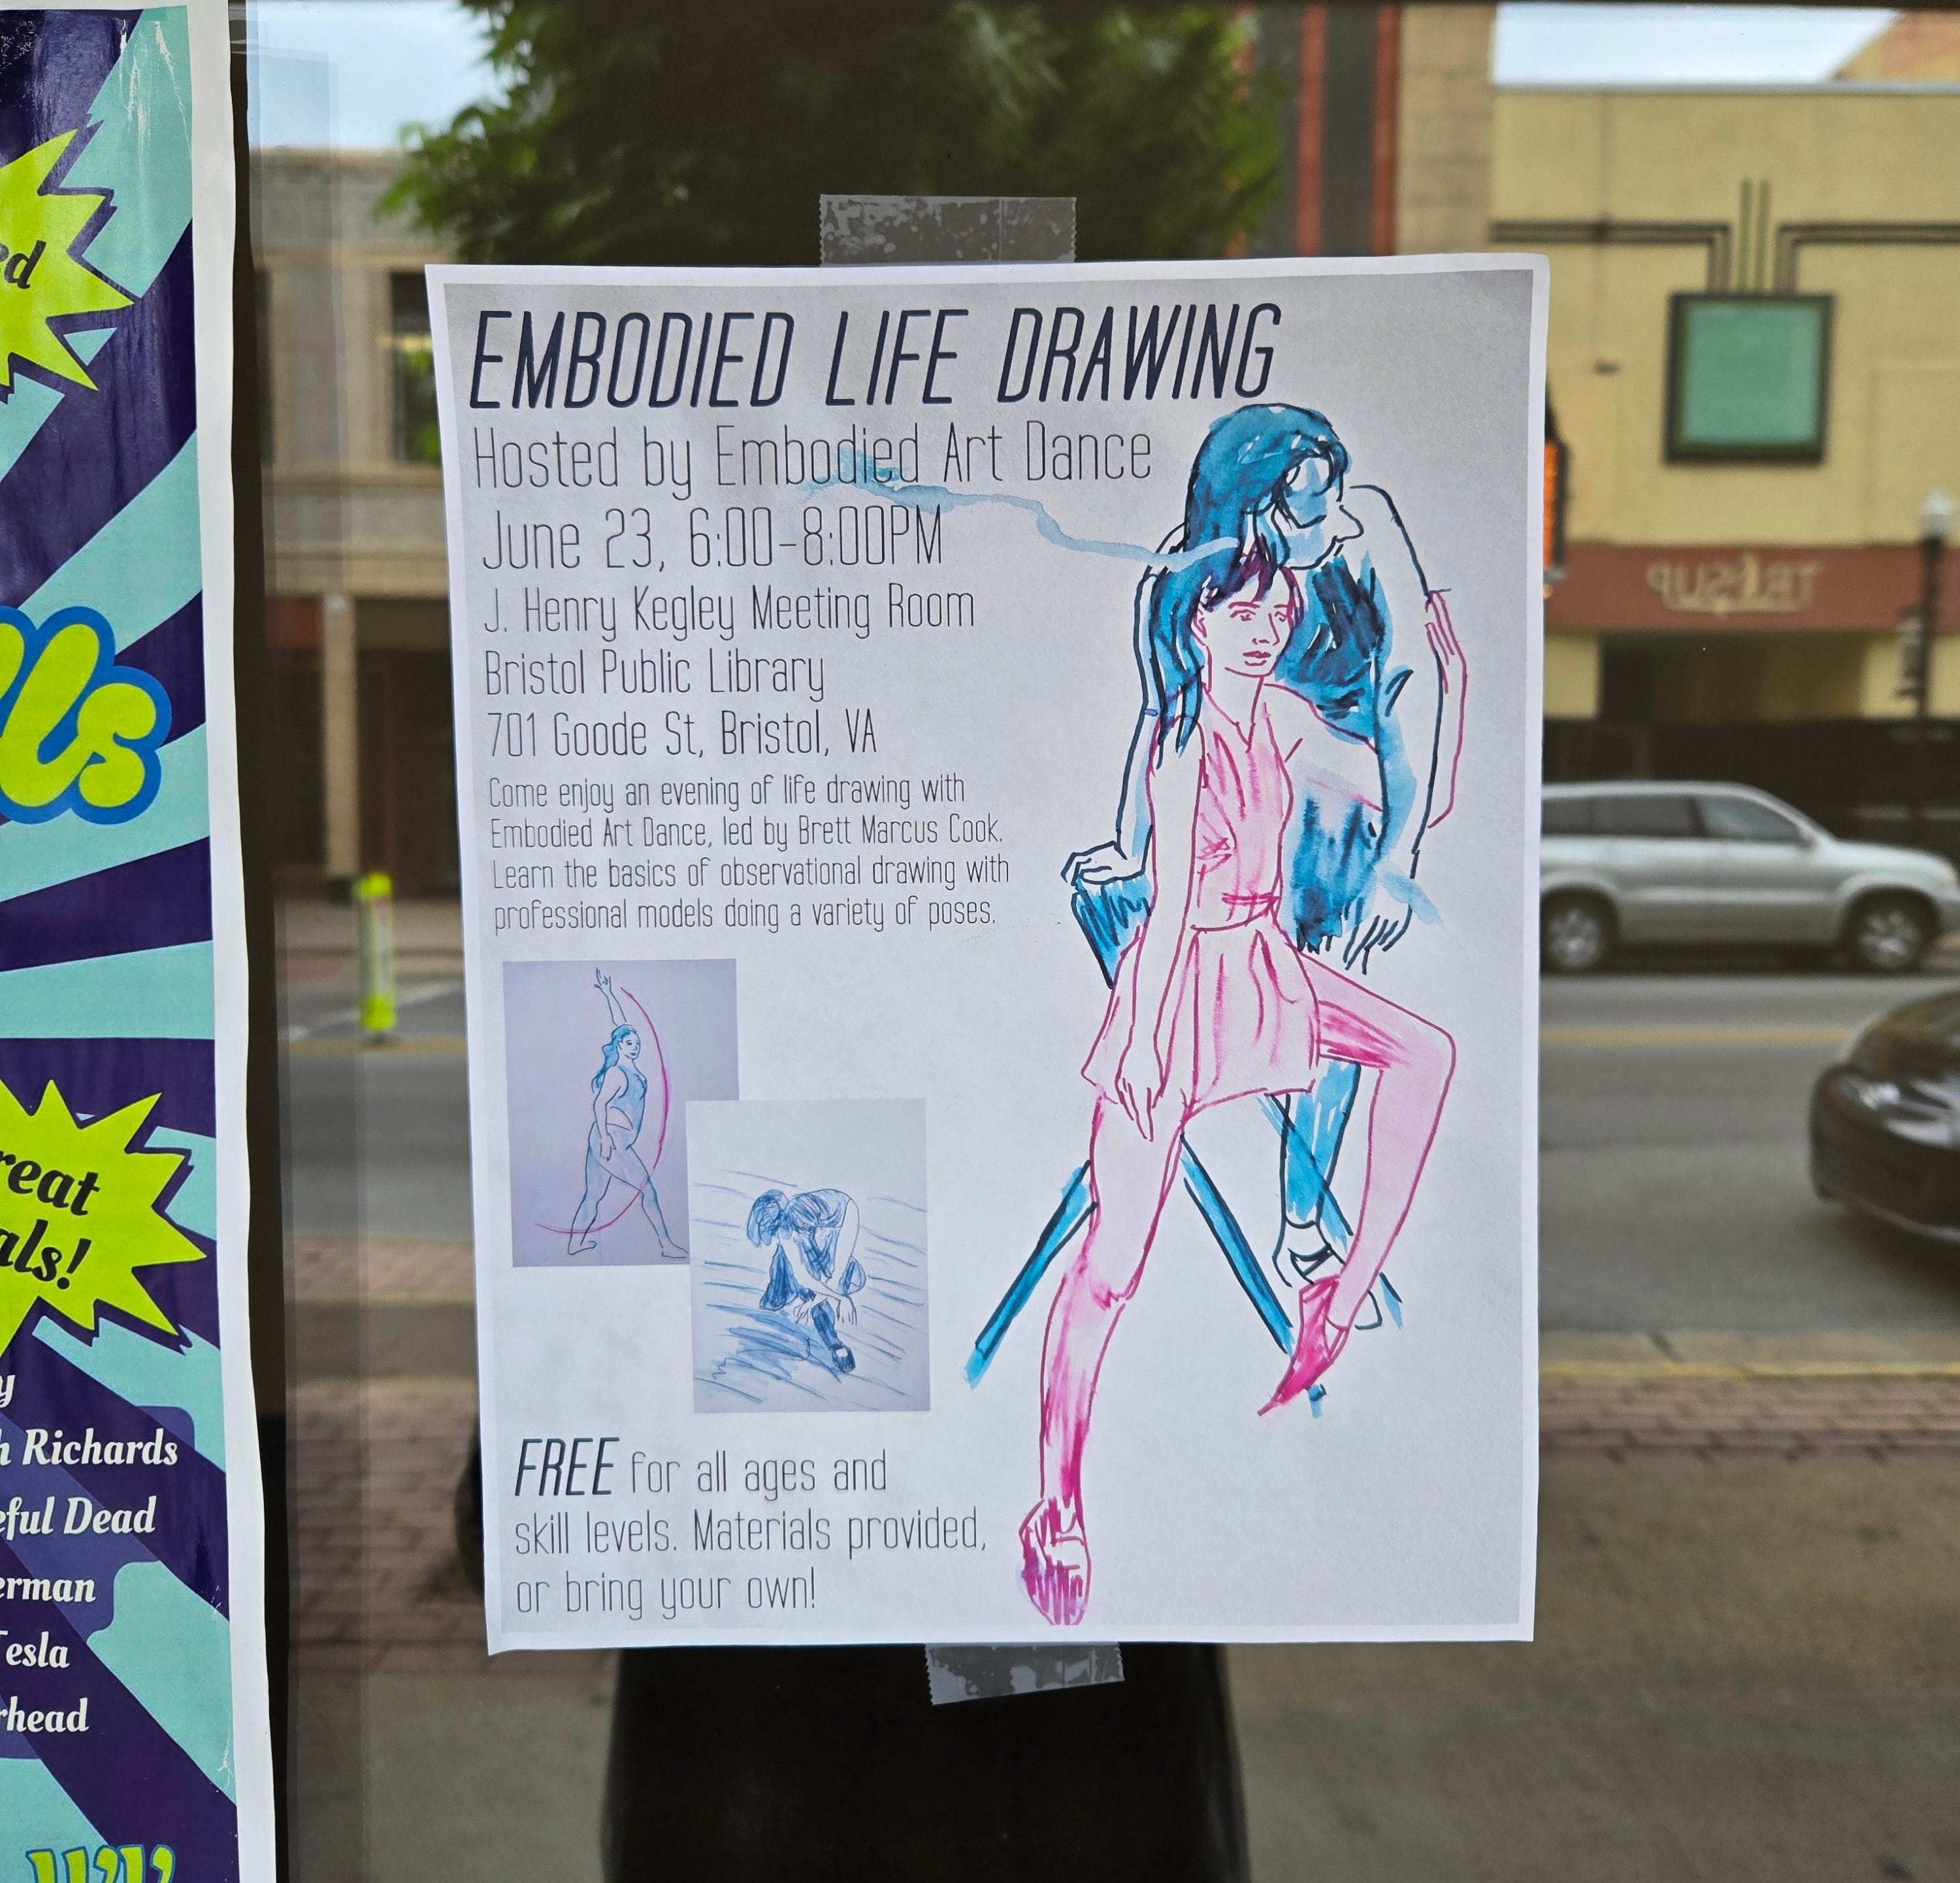 EMBODIED LIFE DRAWING
Hosted by Embodied Art Dance
June 23, 6:00-8:00PM
J. Henry Kegley Meeting Room
Bristol Public Library
701 Goode St, Bristol, VA
Come enjoy an evening of life drawing with
Embodied Art Dance, led by Brett Marcus Cook.
Learn the basics of observational drawing with
professional models doing a variety of poses.
FREE for all ages and
skill levels. Materials provided,
or bring your own!
ed
ls
reat
als!
y
h Richards
eful Dead
erman
Tesla
rhead